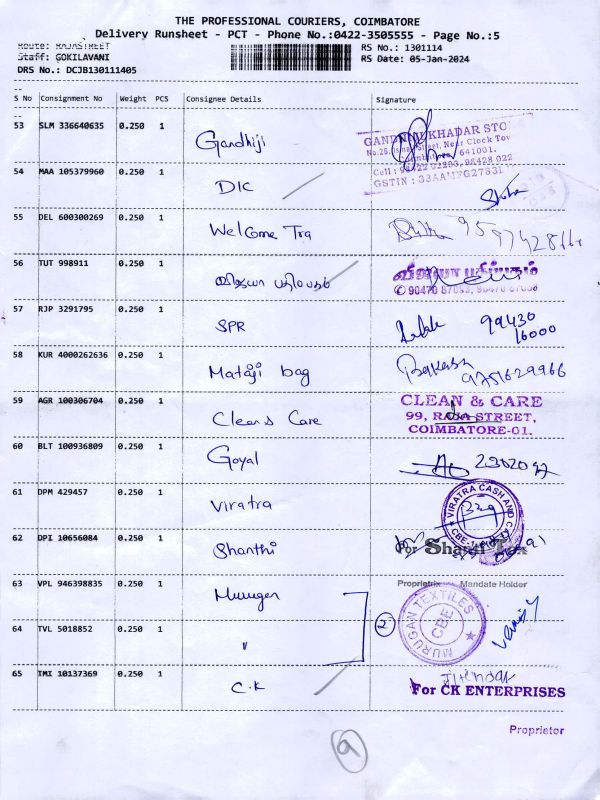 THE PROFESSIONAL COURIERS, COIMBATORE
Delivery Runsheet - PCT - Phone No.:0422-3505555 - Page No.:5
Route: RAJASTREET
RS No.: 1301114
Staff: GOKILAVANI
RS Date: 05-Jan-2024
DRS No.: DCJB130111405
S No Consignment No Weight PCS Consignee Details Signature
53 SLM 336640635 0.250 1 Gandhiji
GANDHI KHADAR STO
641001.
54 MAA 105379960 0.250 1 DIC
55 DEL 600300269 0.250 1 Welcome Tra
56 TUT 998911 0.250 1 விஜயா பதிப்பகம்
விஜயா பதிப்பகம்
57 RJP 3291795 0.250 1 SPR 99430
16000
58 KUR 4000262636 0.250 1 Mataji bag Prakash
9751629966
59 AGR 100306704 0.250 1 Clean & Care
CLEAN & CARE
99, RAJA STREET,
COIMBATORE-01.
60 BLT 100936809 0.250 1 Goyal
61 DPM 429457 0.250 1 Viratra
VIRATRA CASH AND
62 DPI 10656084 0.250 1 Shanthi
For Shanti Tex
Proprietrix Mandate Holder
63 VPL 946398835 0.250 1 Murugan
2
MURUGAN TEXTILES
CBE
64 TVL 5018852 0.250 1 "
65 TMI 10137369 0.250 1 C.K
For CK ENTERPRISES
Proprietor
9